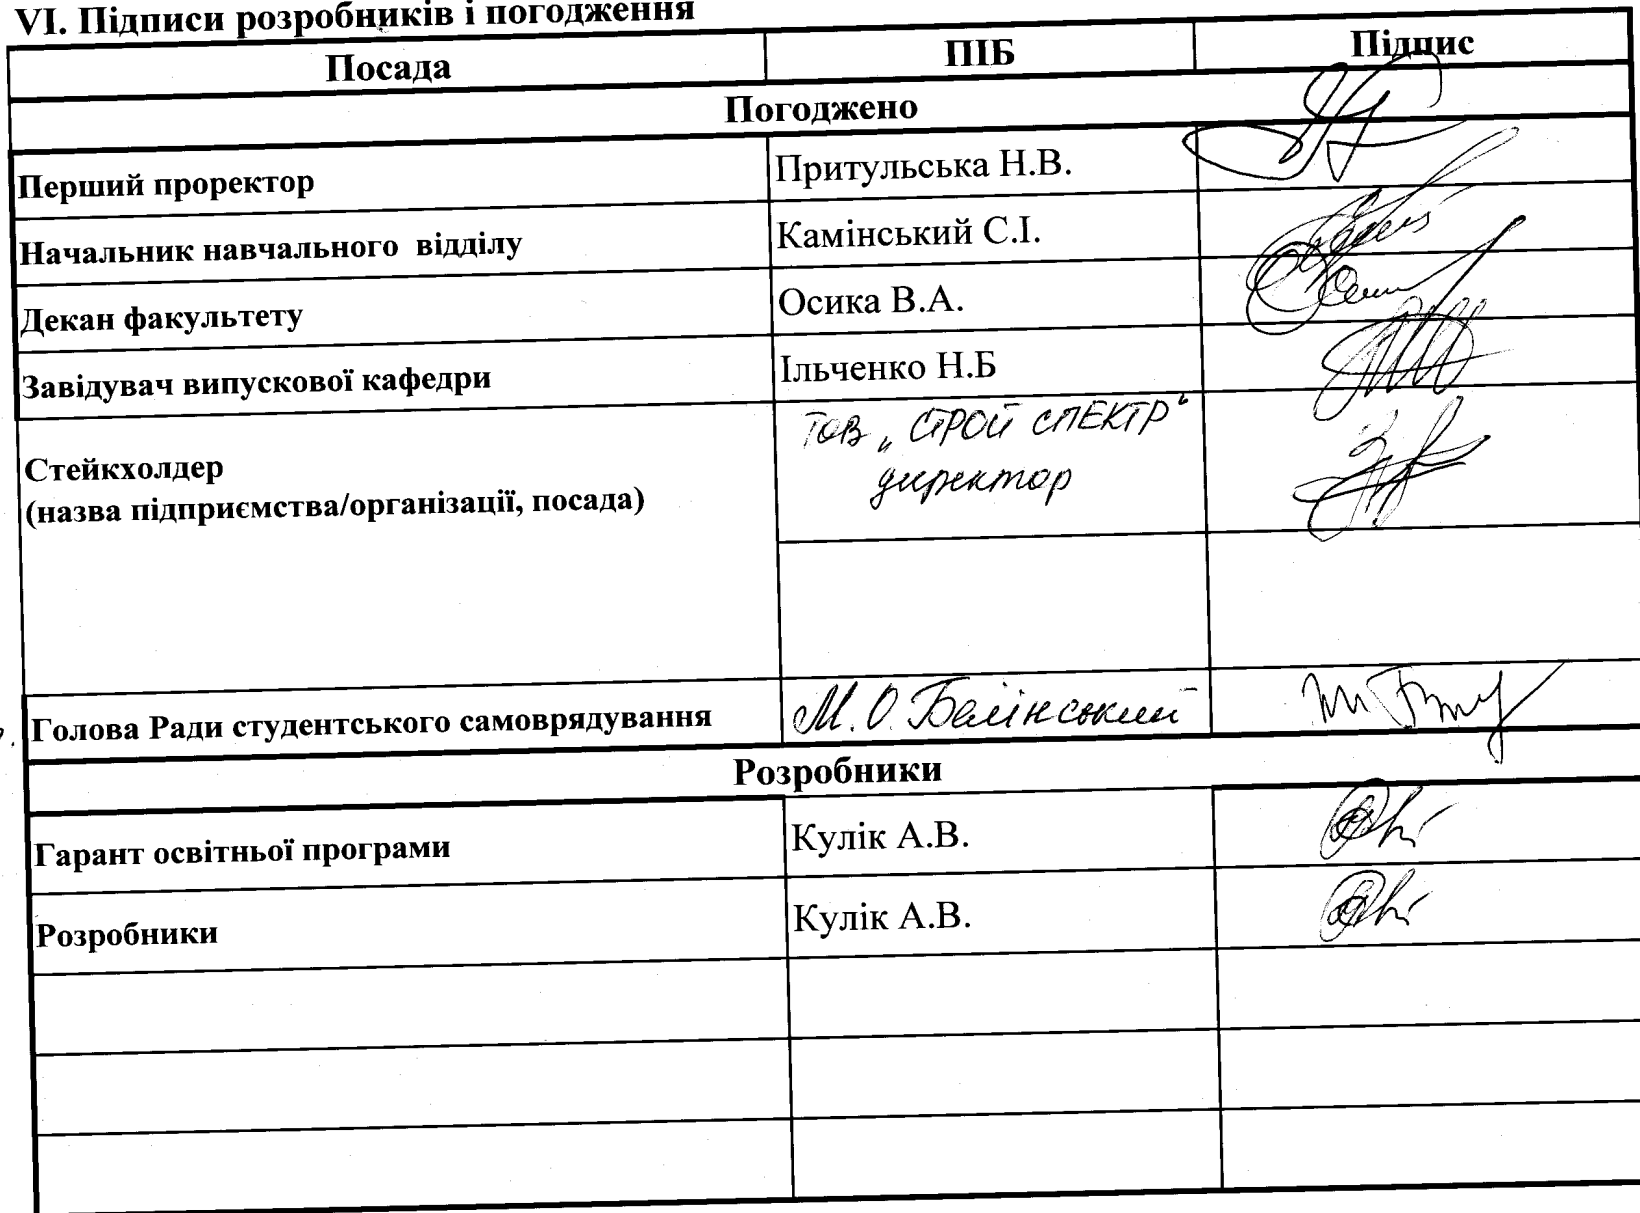 VI. Підписи розробників і погодження
Посада ПІБ Підпис
Погоджено
Перший проректор Притульська Н.В.
Начальник навчального відділу Камінський С.І.
Декан факультету Осика В.А.
Завідувач випускової кафедри Ільченко Н.Б
ТОВ „СТРОЙ СПЕКТР“
директор
Стейкхолдер
(назва підприємства/організації, посада)
Голова Ради студентського самоврядування М.О. Белінський
Розробники
Гарант освітньої програми Кулік А.В.
Розробники Кулік А.В.